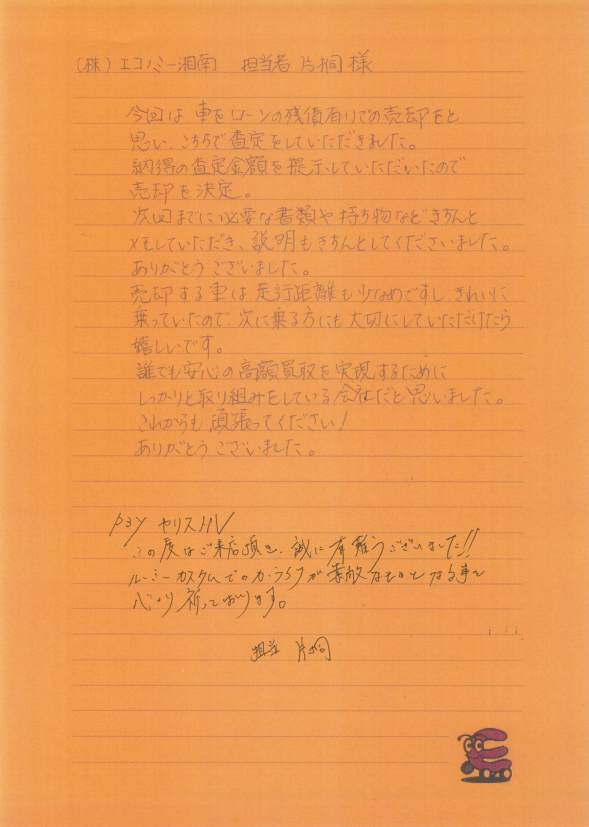 (株)エコノミー湘南 担当者 片桐 様
今回は 車を ローンの残債有りでの売却をと
思い、こちらで査定をしていただきました。
納得の査定金額を提示していただいたので
売却を決定。
次回までに必要な書類や持ち物などきちんと
メモしていただき、説明もきちんとしてくださいました。
ありがとうございました。
売却する車は走行距離も少なめですし、きれいに
乗っていたので、次に乗る方にも大切にしていただけたら
嬉しいです。
誰でも安心の高額買取を実現するために
しっかりと取り組みをしている会社だと思いました。
これからも頑張ってください!
ありがとうございました。
ヤリスHV
この度はご来店頂き、誠に有難うございました!!
ルーミーカスタムでのカーライフが素敵なものとなる事を
心より祈っております。
担当 片桐